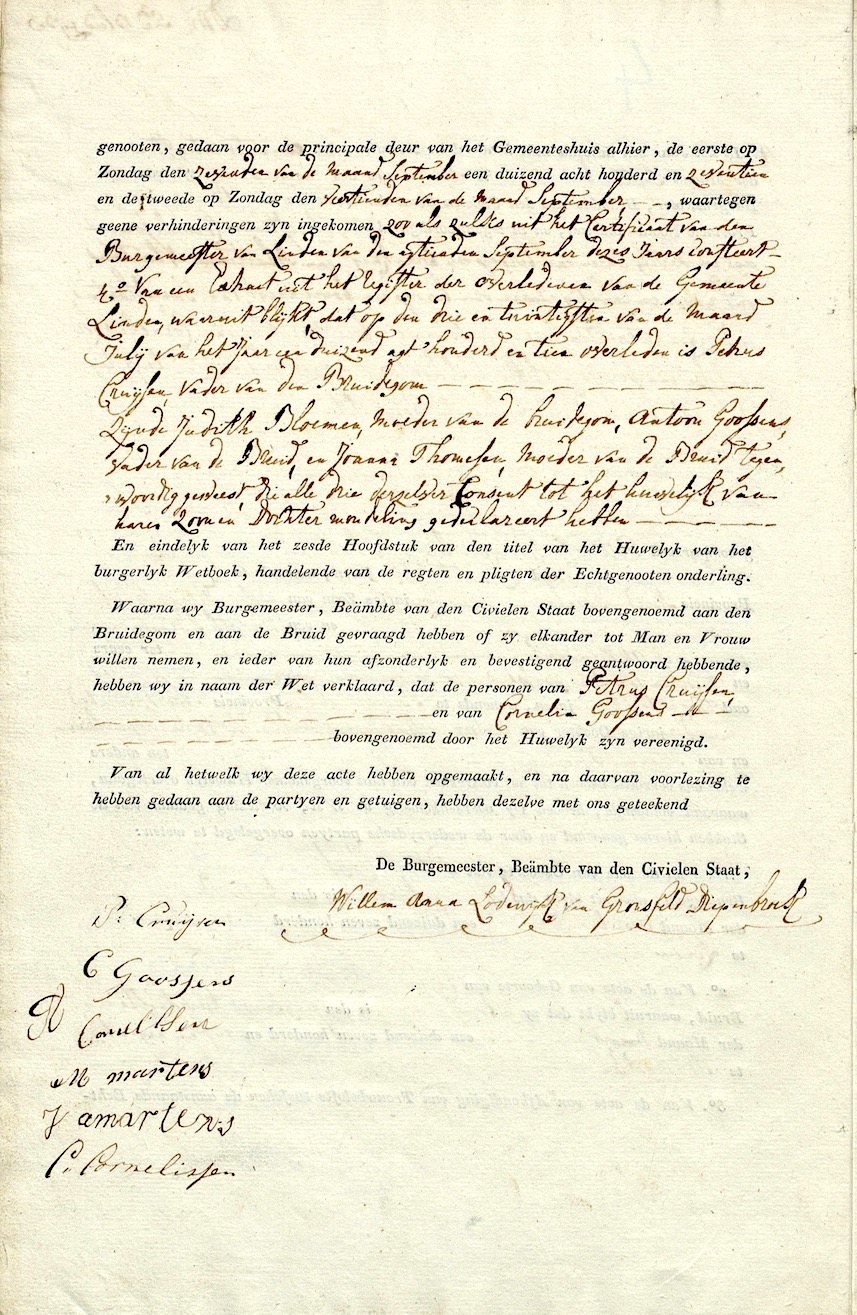 genooten, gedaan voor de principale deur van het Gemeenteshuis alhier, de eerste op
Zondag den zevenden van de Maand September een duizend acht honderd en zeventien
en de tweede op Zondag den veertienden van de Maand September — —, waartegen
geene verhinderingen zyn ingekomen zoo als zulks uit het Certificaat van den
Burgemeester van Linden van den agtienden September dezes Jaars consteert —
4o Van een Extract uit het Register der Overledenen van de Gemeente
Linden, waaruit blijkt, dat op den drie en twintigsten van de Maand
July van het Jaar een duizend agt honderd en tien overleden is Petrus
Cruijsen, Vader van den Bruidegom — — — — — — — — —
Zijnde Judith Bloemen, Moeder van de bruidegom, Antoon Goossens,
Vader van de Bruid, en Joanna Thomesen, Moeder van de Bruid tegen,
woordig geweest, die alle drie derzelver Consent tot het huwelijk van
haren Zoon en Dochter mondeling gedeclareert hebben — — — — —
En eindelyk van het zesde Hoofdstuk van den titel van het Huwelyk van het
burgerlyk Wetboek, handelende van de regten en pligten der Echtgenooten onderling.
Waarna wy Burgemeester, Beämbte van den Civielen Staat bovengenoemd aan den
Bruidegom en aan de Bruid gevraagd hebben of zy elkander tot Man en Vrouw
willen nemen, en ieder van hun afzonderlyk en bevestigend geantwoord hebbende,
hebben wy in naam der Wet verklaard, dat de personen van Petrus Cruijsen,
— — — — — — — — — en van Cornelia Goossens — —
— — — — — — — bovengenoemd door het Huwelyk zyn vereenigd.
Van al hetwelk wy deze acte hebben opgemaakt, en na daarvan voorlezing te
hebben gedaan aan de partyen en getuigen, hebben dezelve met ons geteekend
De Burgemeester, Beämbte van den Civielen Staat,
Willem Anna Lodewijk van Gronsfeld Diepenbroek
P: Cruijsen
C Goossens
Cornelissen
M martens
J a martens
C. Cornelissen